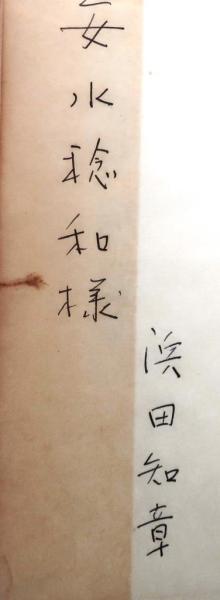 安水稔和様
浜田知章